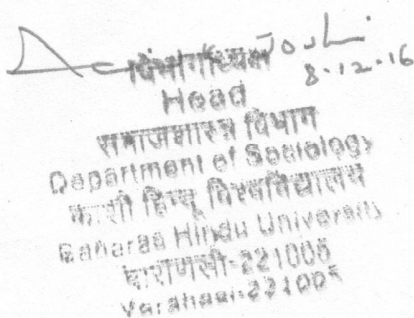 Joshi
8.12.16
विभागाध्यक्ष
Head
समाजशास्त्र विभाग
Department of Sociology
काशी हिन्दू विश्वविद्यालय
Banaras Hindu University
वाराणसी-221005
Varanasi-221005